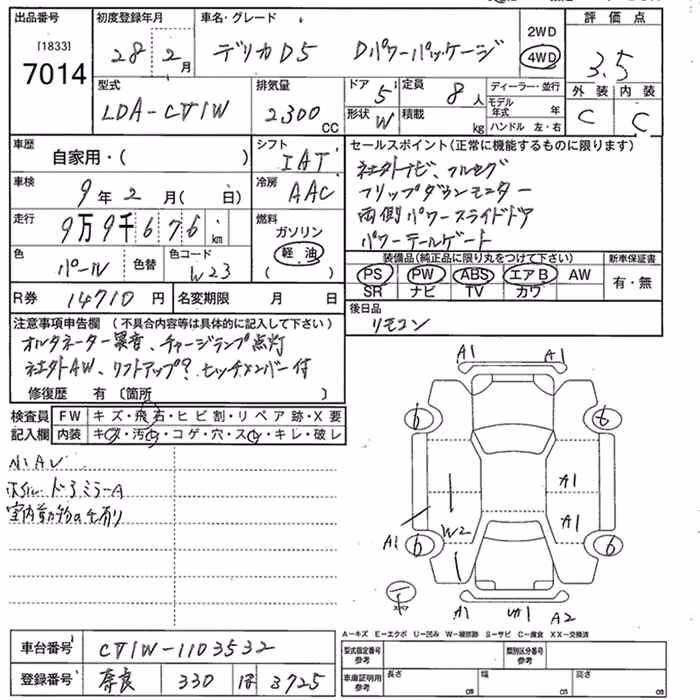 出品番号 初度登録年月 車名・グレード 評価点
[1833]
7014
28 2月 デリカD5 Dパワーパッケージ 2WD 4WD 3.5
型式 排気量 ドア 定員 ディーラー・並行 外装 内装
LDA-CV1W 2300 CC 5 8人 モデル年式 年 C C
形状 W 積載 kg ハンドル 左・右
車歴 自家用・( ) シフト IAT セールスポイント(正常に機能するものに限ります)
車検 9年2月( 日) 冷房 AAC 社外ナビ、フルセグ
フリップダウンモニター
走行 9万9千676km 燃料 ガソリン 両側パワースライドドア
軽油 パワーテールゲート
( )
色 パール 色替 色コード W23 装備品(純正品に限り丸をつけて下さい) 新車保証書
PS PW ABS エアB AW 有・無
SR ナビ TV カワ
R券 14710円 名変期限 月 日 後日品
リモコン
注意事項申告欄 (不具合内容等は具体的に記入して下さい)
オルタネーター異音、チャージランプ点灯
社外AW、リフトアップ?ヒッチメンバー付
修復歴 有 〔箇所 〕
検査員記入欄 FW キズ・飛石・ヒビ割・リペア跡・X要
内装 キズ・汚・コゲ・穴・スレ・キレ・破レ
ドアミラーA
A1 A1
6 6
A1
A1
W2
A1
6 6
A1 A2
A-キズ E-エクボ U-凹み W-補修跡 S-サビ C-腐食 XX-交換済
車台番号 CV1W-1103532 型式指定番号 参考 類別区分番号 参考
登録番号 奈良 330 3725 車庫証明用 参考 長さ cm 幅 cm 高さ cm